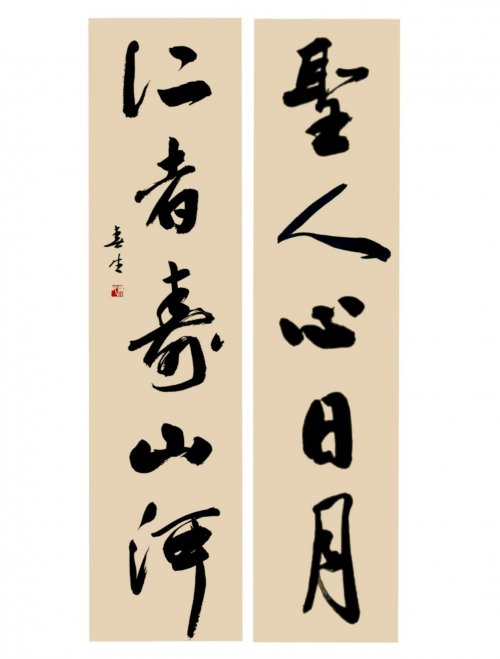 聖人心日月
仁者壽山河
喜生